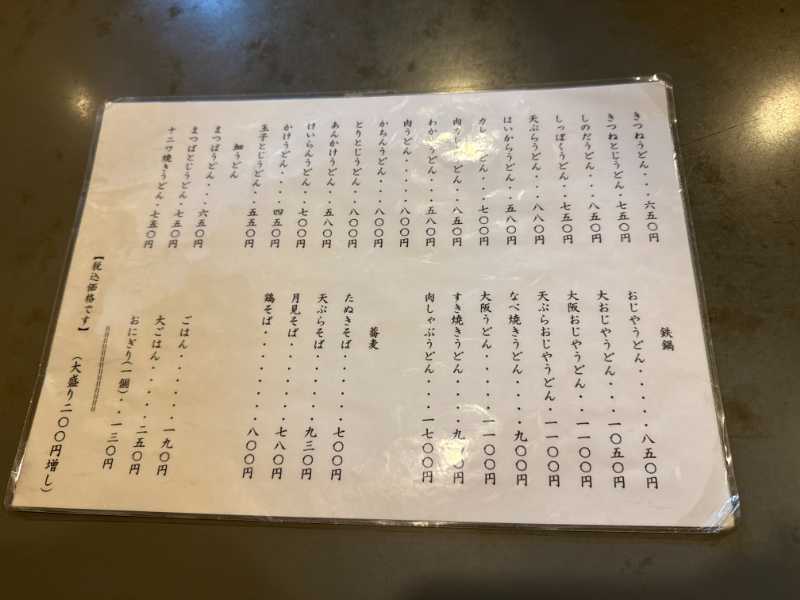 きつねうどん・・・六五〇円
きつねとじうどん・七五〇円
しのだうどん・・・八五〇円
しっぽくうどん・・七五〇円
天ぷらうどん・・・八八〇円
はいからうどん・・五八〇円
カレーうどん・・・七〇〇円
肉カレーうどん・・八五〇円
わかめうどん・・・五八〇円
肉うどん・・・・・八〇〇円
かちんうどん・・・八〇〇円
とりとじうどん・・八〇〇円
あんかけうどん・・五八〇円
けいらんうどん・・七〇〇円
かけうどん・・・・四五〇円
玉子とじうどん・・五五〇円
細うどん
まつばうどん・・・六五〇円
まつばとじうどん・七五〇円
ナニワ焼きうどん・七五〇円
鉄鍋
おじやうどん・・・・・八五〇円
大おじやうどん・・・一〇五〇円
大阪おじやうどん・・一一〇〇円
天ぷらおじやうどん・一一〇〇円
なべ焼きうどん・・・・九〇〇円
大阪うどん・・・・・一一〇〇円
すき焼きうどん・・・・九〇〇円
肉しゃぶうどん・・・一七〇〇円
蕎麦
たぬきそば・・・・・七〇〇円
天ぷらそば・・・・・九三〇円
月見そば・・・・・・七八〇円
鶏そば・・・・・・・八〇〇円
ごはん・・・・・・一九〇円
大ごはん・・・・・二五〇円
おにぎり（一個）・・一三〇円
【税込価格です】　（大盛り二〇〇円増し）